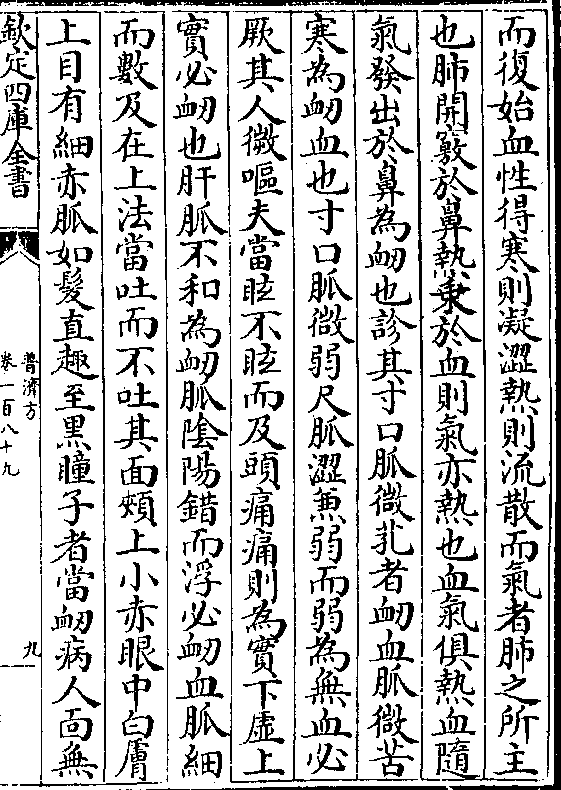 而復始血性得寒則凝澀熱則流散而氣者肺之所主
也肺開竅於鼻熱乘於血則氣亦熱也血氣俱熱血隨
氣發出於鼻為衂也診其寸口脈微芤者衂血脈微苦
寒為衂血也寸口脈微弱尺脈澀兼弱而弱為無血必
厥其人微嘔夫當眩不眩而及頭痛痛則為實下虛上
實必衂也肝脈不和為衂脈陰陽錯而浮必衂血脈細
而數及在上法當吐而不吐其面頰上小赤眼中白膚
上目有細赤脈如髮直趣至黑瞳子者當衂病人面無
欽定四庫全書
普濟方
卷一百八十九
九